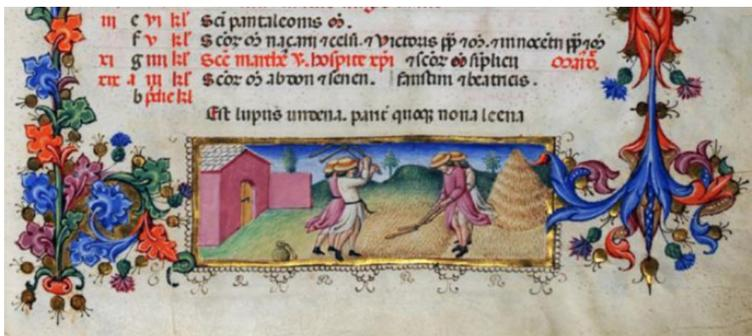 iii e vi kl Sci pantaleonis m.
f v kl Scor m naçarii ⁊ celsi. ⁊ Victoris pp ⁊ m. ⁊ innocetii pp ⁊ m
xi g iiii kl Sce marthe v. hospite xpi ⁊ scor m siplicii
xix a iii kl Scor m abdon ⁊ senen. faustini ⁊ beatricis.
b pridie kl
Est lupus undena. panc quoq nona leena